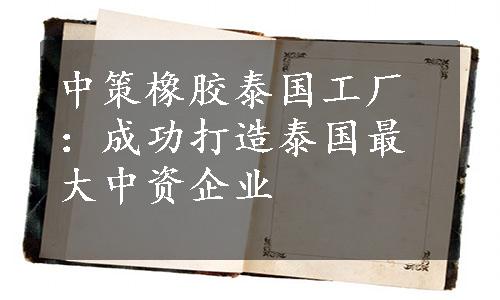 中策橡胶泰国工厂
：成功打造泰国最
大中资企业